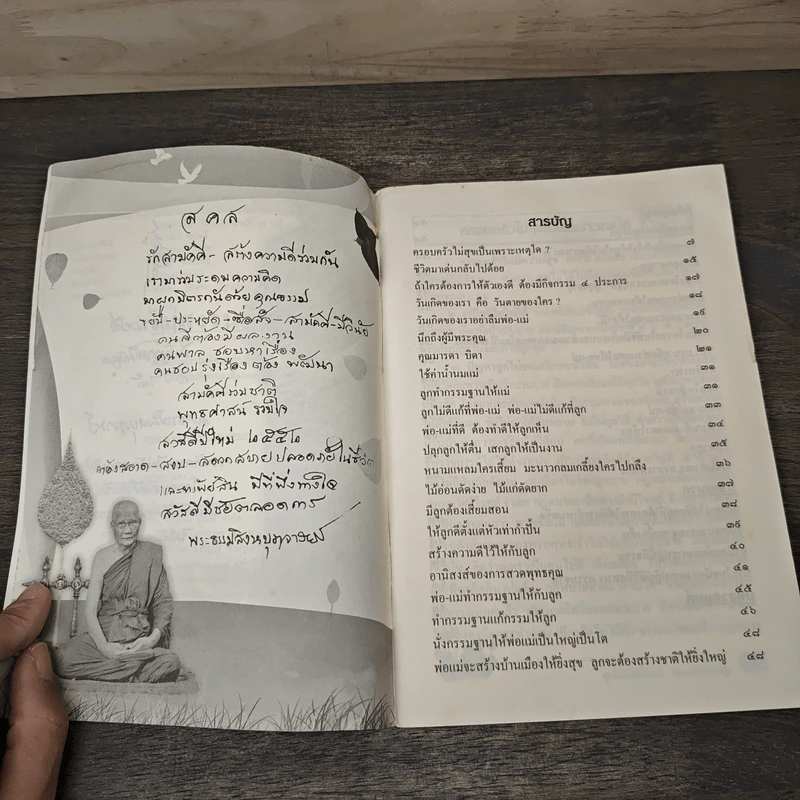 ส ค ส
รักสามัคคี - สร้างความดีร่วมกัน
เรามาร่วมระดมความคิด
มาผูกมิตรกันด้วยคุณธรรม
ขยัน - ประหยัด - ซื่อสัจ - สามัคคี - มีวินัย
คนดีต้องมีผลงาน
คนพาล ชอบหาเรื่อง
คนชอบรุ่งเรือง ต้อง พัฒนา
สามัคคีร่วมชาติ
พุทธศาสน์ รวมใจ
สวัสดีปีใหม่ ๒๕๕๒
ต้องสอาด - สงบ - สดวกสบาย ปลอดภัยในชีวิต
และทรัพย์สิน มีที่พึ่งทางใจ
สวัสดีมีชัยตลอดกาล
พระธรรมสิงหบุราจารย์
สารบัญ
ครอบครัวไม่สุขเป็นเพราะเหตุใด ? ๗
ชีวิตมาเด่นกลับไปด้อย ๑๕
ถ้าใครต้องการให้ตัวเองดี ต้องมีกิจกรรม ๔ ประการ ๑๗
วันเกิดของเรา คือ วันตายของใคร ? ๑๘
วันเกิดของเราอย่าลืมพ่อ-แม่ ๑๙
นึกถึงผู้มีพระคุณ ๒๐
คุณมารดา บิดา ๒๑
ใช้ค่าน้ำนมแม่ ๓๑
ลูกทำกรรมฐานให้แม่ ๓๑
ลูกไม่ดีแก้ที่พ่อ-แม่ พ่อ-แม่ไม่ดีแก้ที่ลูก ๓๓
พ่อ-แม่ที่ดี ต้องทำดีให้ลูกเห็น ๓๔
ปลุกลูกให้ตื่น เสกลูกให้เป็นงาน ๓๕
หนามแหลมใครเสี้ยม มะนาวกลมเกลี้ยงใครไปกลึง ๓๖
ไม้อ่อนดัดง่าย ไม้แก่ดัดยาก ๓๗
มีลูกต้องเสี้ยมสอน ๓๘
ให้ลูกดีตั้งแต่หัวเท่ากำปั้น ๓๙
สร้างความดีไว้ให้กับลูก ๔๐
อานิสงส์ของการสวดพุทธคุณ ๔๑
พ่อ-แม่ทำกรรมฐานให้กับลูก ๔๕
ทำกรรมฐานแก้กรรมให้ลูก ๔๖
นั่งกรรมฐานให้พ่อแม่เป็นใหญ่เป็นโต ๔๘
พ่อแม่จะสร้างบ้านเมืองให้ยิ่งสุข ลูกจะต้องสร้างชาติให้ยิ่งใหญ่ ๔๘